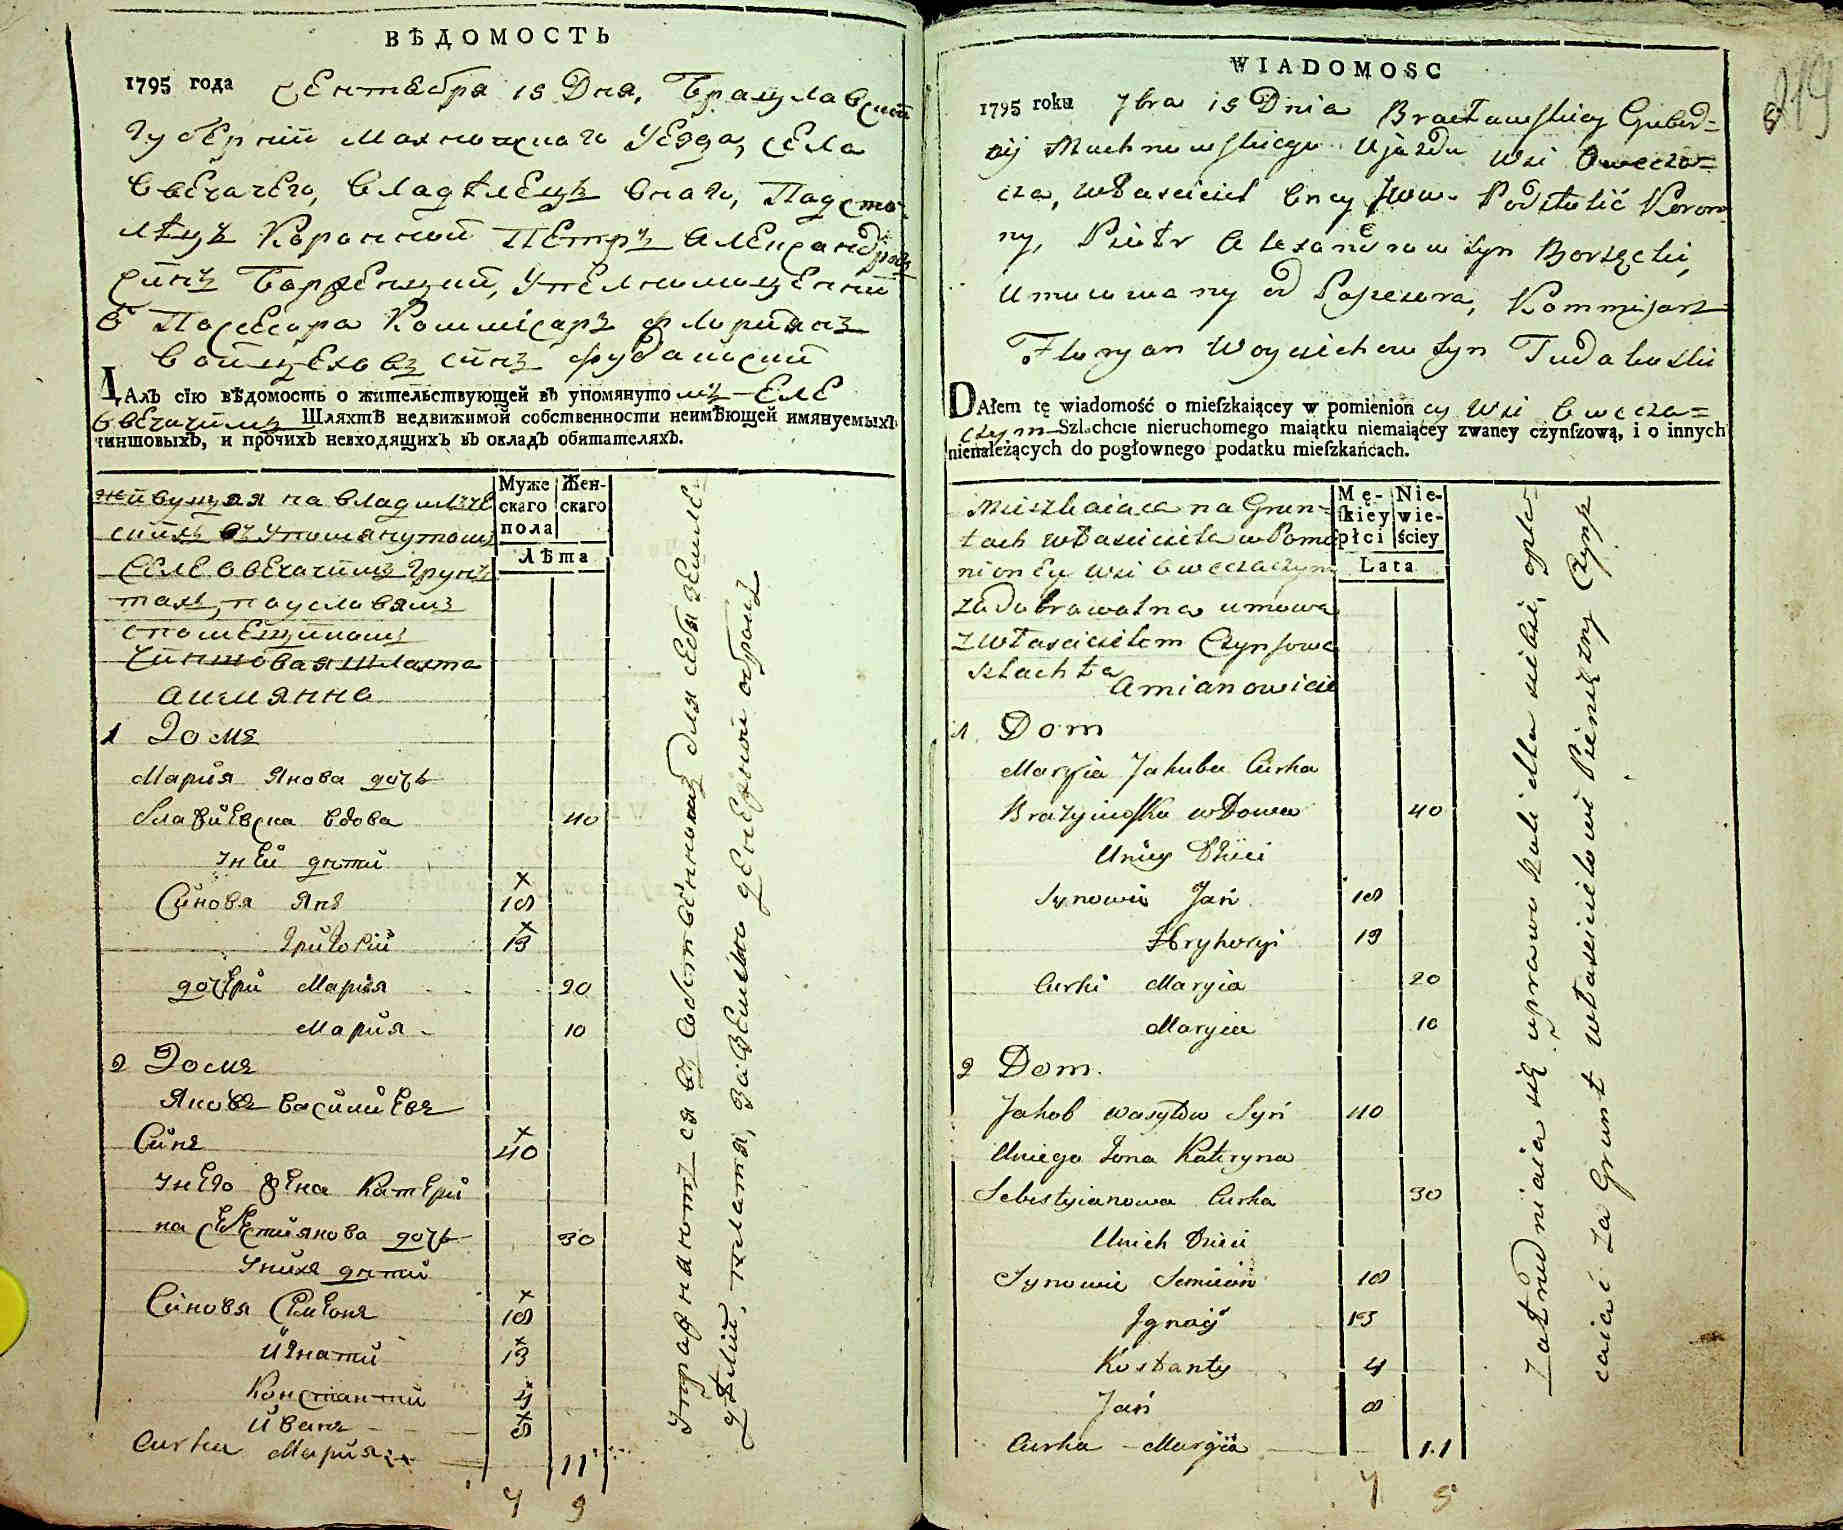 ВѢДОМОСТЬ
1795 года Сентебра 15 Дня, Брацлавской
Губернии Махновскаго Уезда, села
Овечачего, владѣлецъ онаго, Подсто-
лѣцъ Коронной Петръ Александровъ
синъ Борженцкий, Упелномоценний
о Посесора Коммісаръ Флориянъ
Войцеховъ синъ
ДАлъ сїю вѣдомость о жительствующей въ упомянутомъ селе
Овечачимъ Шляхтѣ недвижимой собственности неимѣющей имянуемыхъ
чиншовыхъ, и прочихъ невходящихъ въ окладъ обитателяхъ.
живущая на владѣлче
скихъ въ упомянутомъ
Селе Овечачимъ грун
тахъ, по условиямъ
с помещикомъ
Чиншовая шляхта
Муже
скаго
пола
Жен-
скаго
Лѣта
1 Домъ
Мария Якова дочь
вдова 40
У ней дѣти
Синовя Янъ 18
Григорий 13
дочери Мария 20
Мария 10
2 Домъ
Яковъ Василиевъ
Синъ 40
У него жена Катери
на Себестиянова дочь 30
У нихъ дѣти
Синовя Семионъ 18
Игнатий 13
Константий 4
Иванъ 8
Curka Мария 11
7 9
Упражняютъ ся въ собственномъ для себя земле
делий, платя, за землю денежный оброкъ
WIADOMOSC
1795 roku 7bra 15 Dnia Bracławskiey Guber=
nij Machnowskiego Ujazdu wsi Owecza=
cza, własciciel Podstolić Koron
ny, Piotr Alexandrow syn Borzęcki,
Umocowany od Possesora, Kommisarz
Floryan Woyciechow syn
DAłem tę wiadomość o mieſzkaiącey w pomienioney wsi Owecza=
czym Szlachcie nieruchomego maiątku niemaiącey zwaney czynſzową, i o innych
nienależących do pogłownego podatku mieſzkańcach.
Mieszkaiąca na Grun=
tach własciciela w Pomie
nioney wsi Oweczaczym
za dobrowolną umową
z włascicielem Czynszowa
szlachta
Amianowicie
Mę-
ſkiey
płci
Nie-
wie-
ściey
Lata
1 Dom
Maryia Jakuba Curka
wdowa 40
U niey Dzieci
Synowie Jan 18
Hryhoryi 13
Curki Maryia 20
Maryia 10
2 Dom
Jakob wasylow Syn 40
U niego żona Kateryna
Sebestyianowa Curka 30
U nich Dzieci
Synowie Semion 18
Ignacy 13
Kostanty 4
Jan 8
Curka Maryia 11
7 5
Zatrudniaia się uprawą roli dla siebie, opła-
caiąc za Grunt włascicielowi Pieniężny Czynsz
219